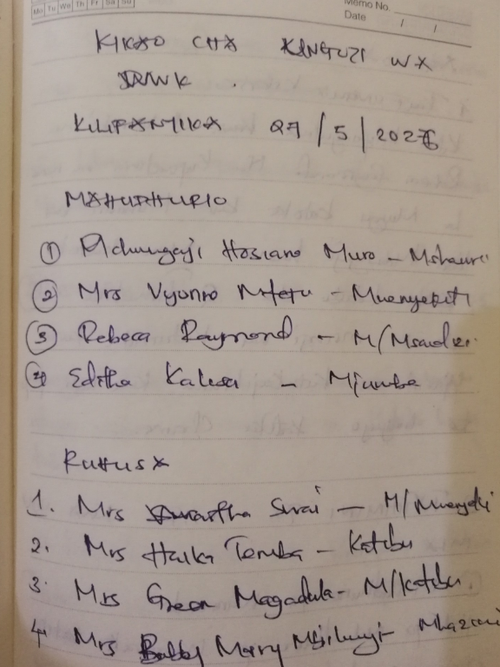 Mo Tu We Th Fr Sa Su
Memo No.
Date / /
KIKAO CHA KANGUZI WA
JRWK.
KILIFANYIKA 27/5/2026
MAHUDHURIO
① Mchungaji Hosiano Muro - Mshauri
② Mrs Vyonno - Mwenyekiti
③ Rebeca Raymond - M/Msaidizi
④ Editha - Mjumbe
RUHUSA
1. Mrs Swai - M/Mwenyekiti
2. Mrs Haika Temba - Katibu
3. Mrs Green Magadula - M/Katibu.
4. Mrs Betty Mary - Mhazini